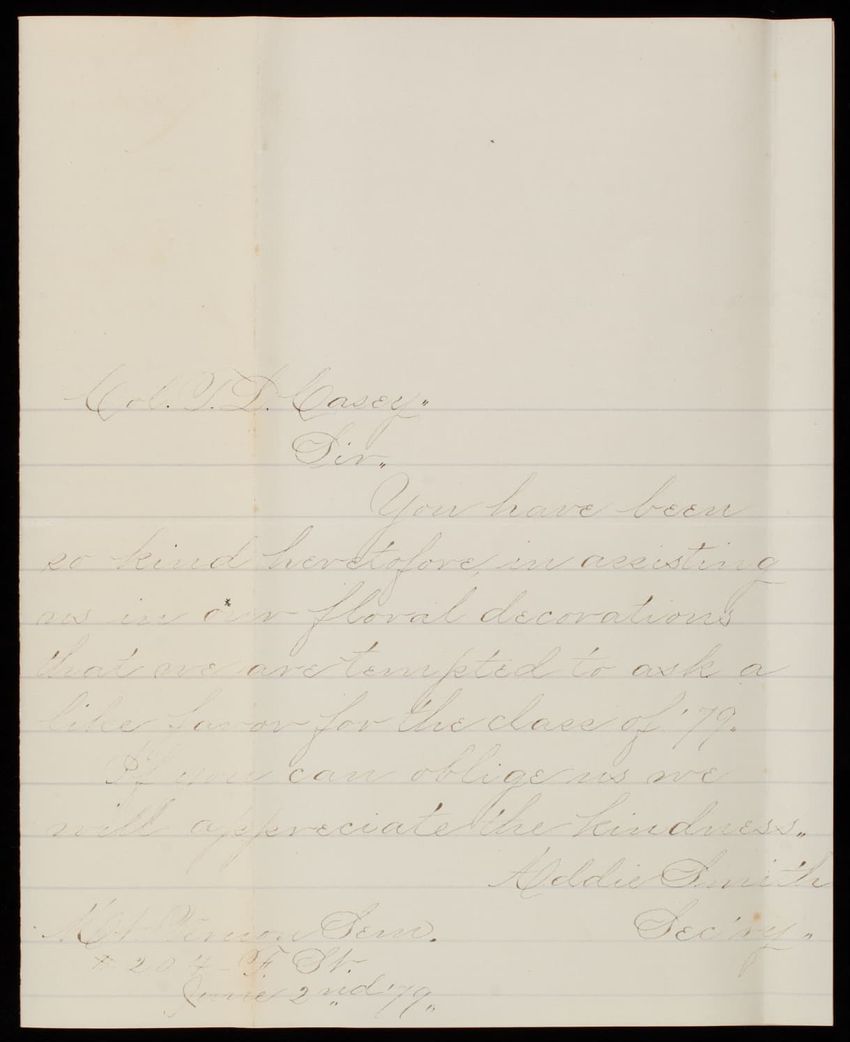 Col. T. L. Casey,,
Sir,,
You have been
so kind heretofore, in assisting
us in our floral decorations
that we are tempted to ask a
like favor for the class of '79.
If you can oblige us we
will appreciate the kindness,,
Addie Smith
Mt. Vernon Sem. Sec'ry,,
F St.
June 2nd '79,,